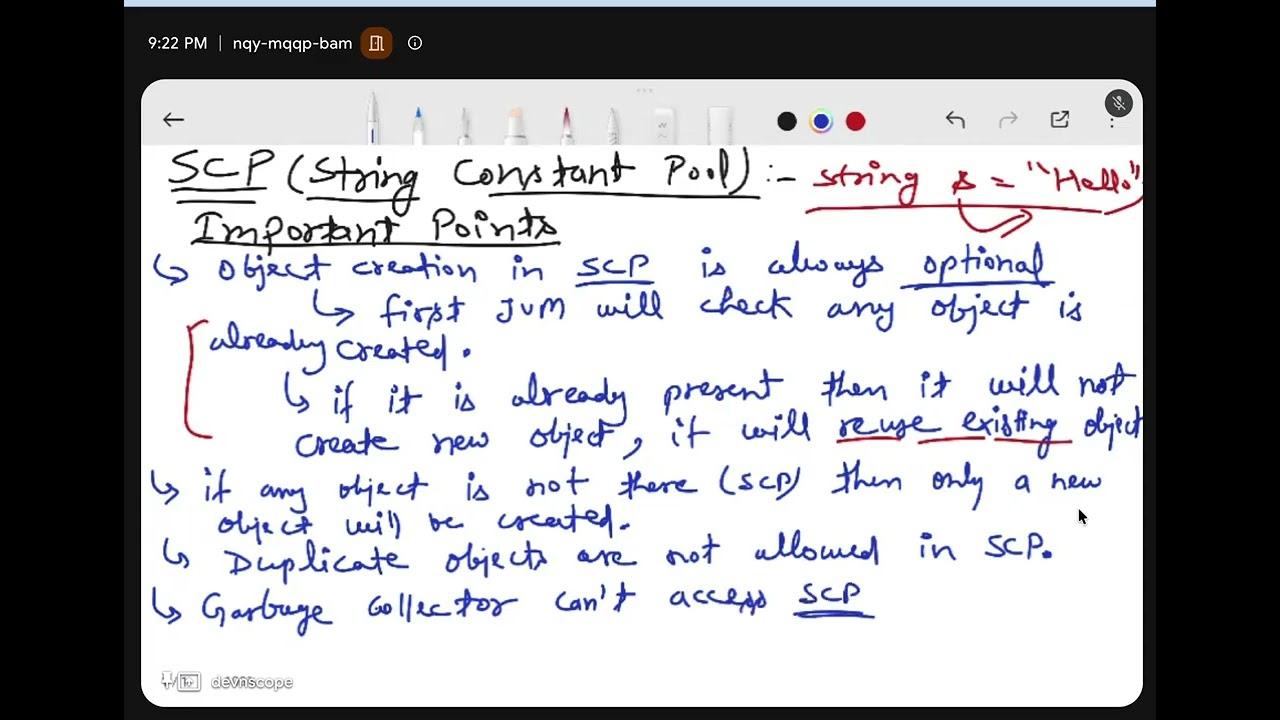 9:22 PM | nqy-mqqp-bam
SCP (String Constant Pool) :- string s = "Hello"
Important Points
↳ Object creation in SCP is always optional
↳ first JVM will check any object is
already created.
↳ if it is already present then it will not
create new object, it will reuse existing object
↳ if any object is not there (SCP) then only a new
object will be created.
↳ Duplicate objects are not allowed in SCP.
↳ Garbage Collector can't access SCP
devnscope